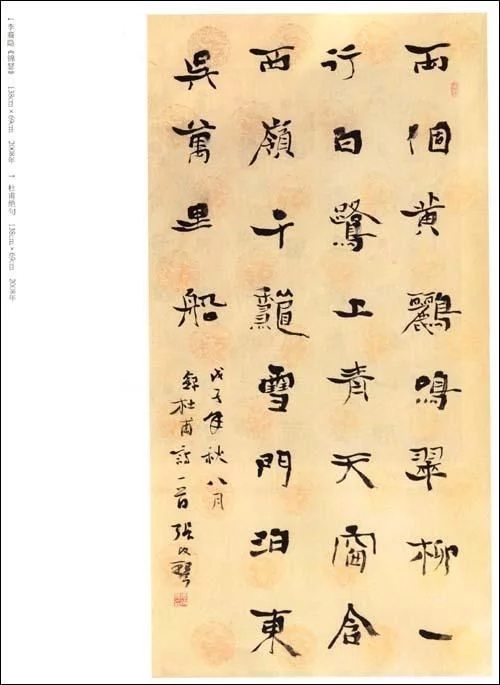 李商隐《锦瑟》 138cm×69cm 2008年 杜甫绝句 138cm×69cm 2008年
両個黄鸝鳴翠柳一
行白鷺上青天窗含
西嶺千龝雪門泊東
吳萬里船
戊子年秋八月
録杜甫詩一首 张改琴